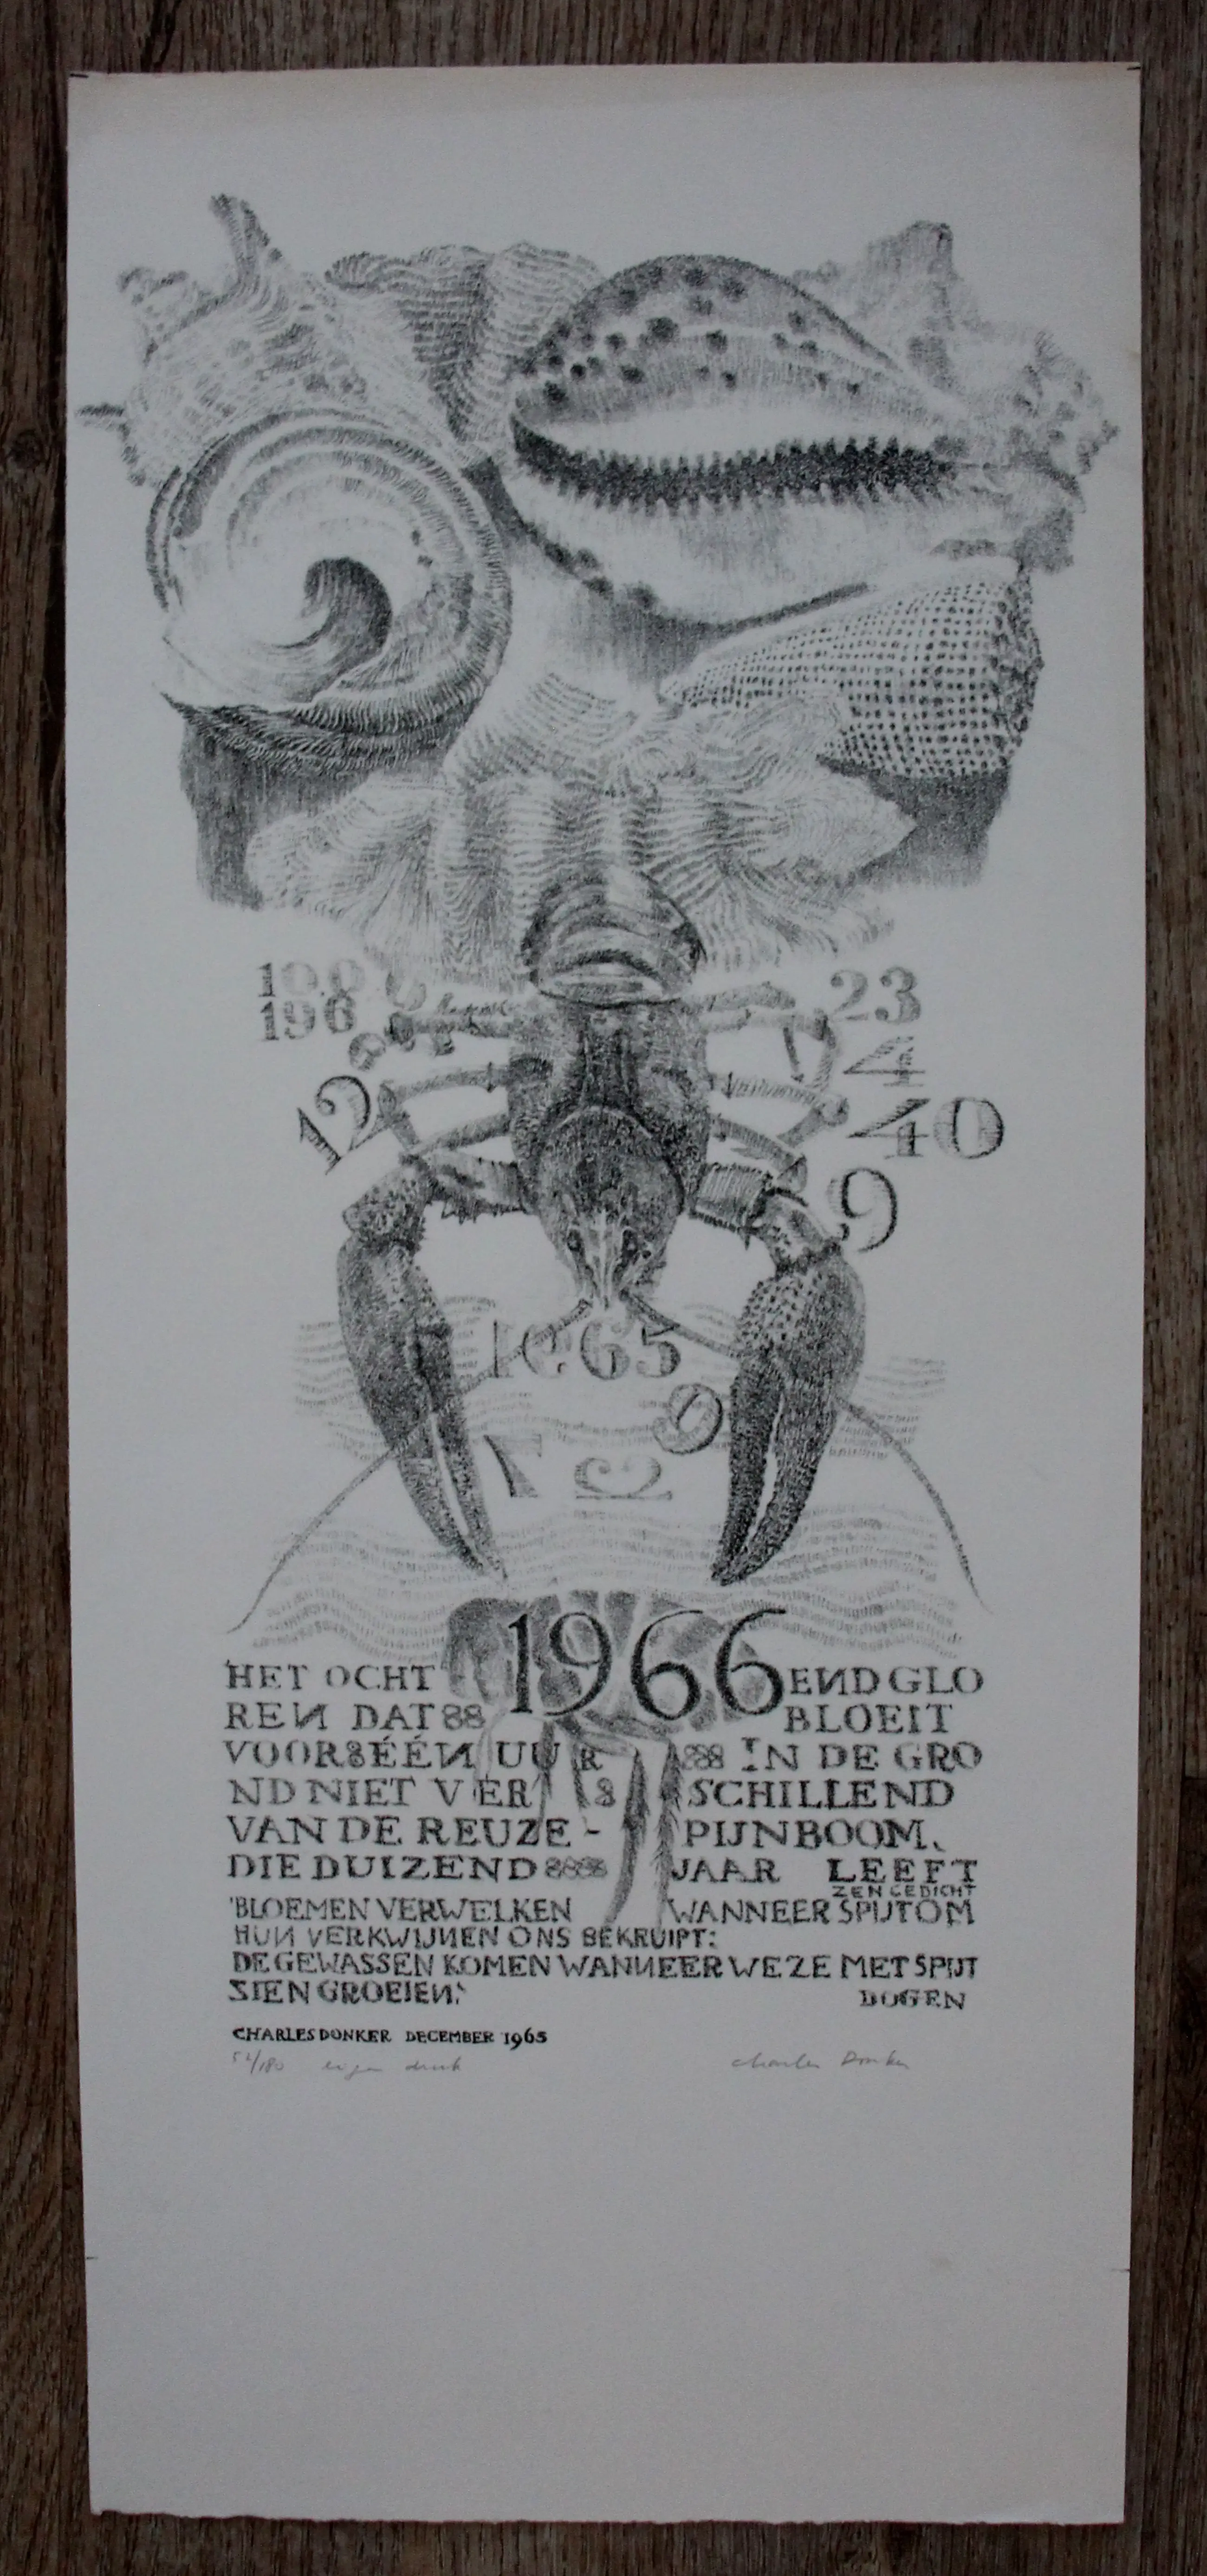 198
196
12
23
4
40
9
65
9
7
2
1966
HET OCHT END GLO
REN DAT 88 BLOEIT
VOOR8ÉÉN UUR 888 IN DE GRO
ND NIET VER 8 SCHILLEND
VAN DE REUZE- PIJNBOOM,
DIE DUIZEND 8888 JAAR LEEFT
ZEN GEDICHT
'BLOEMEN VERWELKEN WANNEER SPIJT OM
HUN VERKWIJNEN ONS BEKRUIPT:
DE GEWASSEN KOMEN WANNEER WE ZE MET SPIJT
ZIEN GROEIEN.'
DOGEN
CHARLES DONKER DECEMBER 1965
52/180 eigen druk Charles Donker